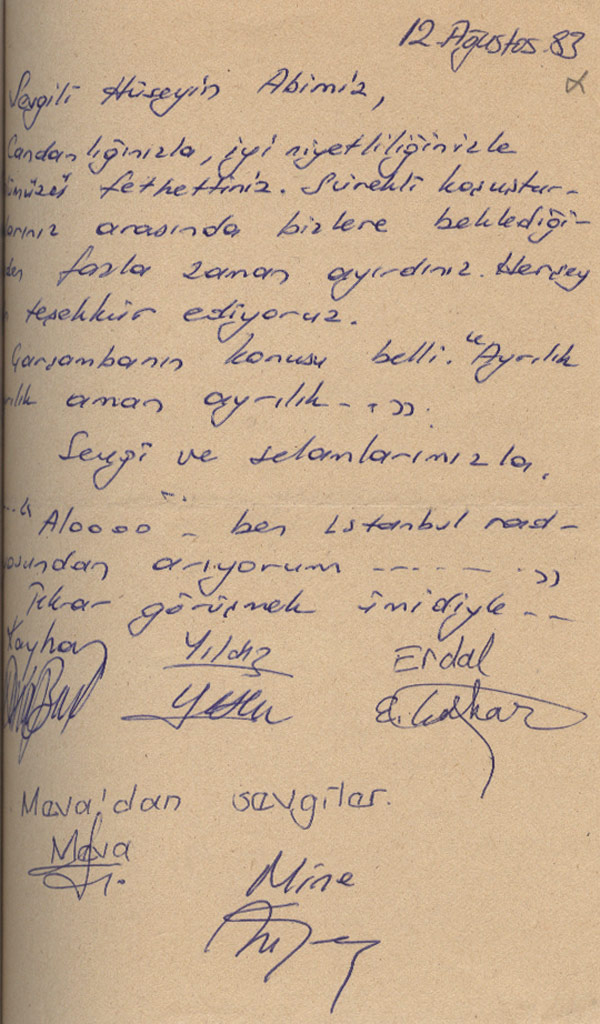 12 Ağustos 83
Sevgili Hüseyin Abimiz,
Candanlığınızla, iyi niyetliliğinizle
fethettiniz. Sürekli koşuştur-
larınız arasında bizlere beklediği-
den fazla zaman ayırdınız. Herşey
teşekkür ediyoruz.
Çarşambanın konusu belli. "Ayrılık
rılık aman ayrılık - . . ".
Sevgi ve selamlarımızla,
..." Aloooo - ben İstanbul rad-
yosundan arıyorum ------- "
Tekrar görüşmek ümidiyle --
Kayhan Yıldız Erdal
Meva'dan sevgiler.
Meva
Mine